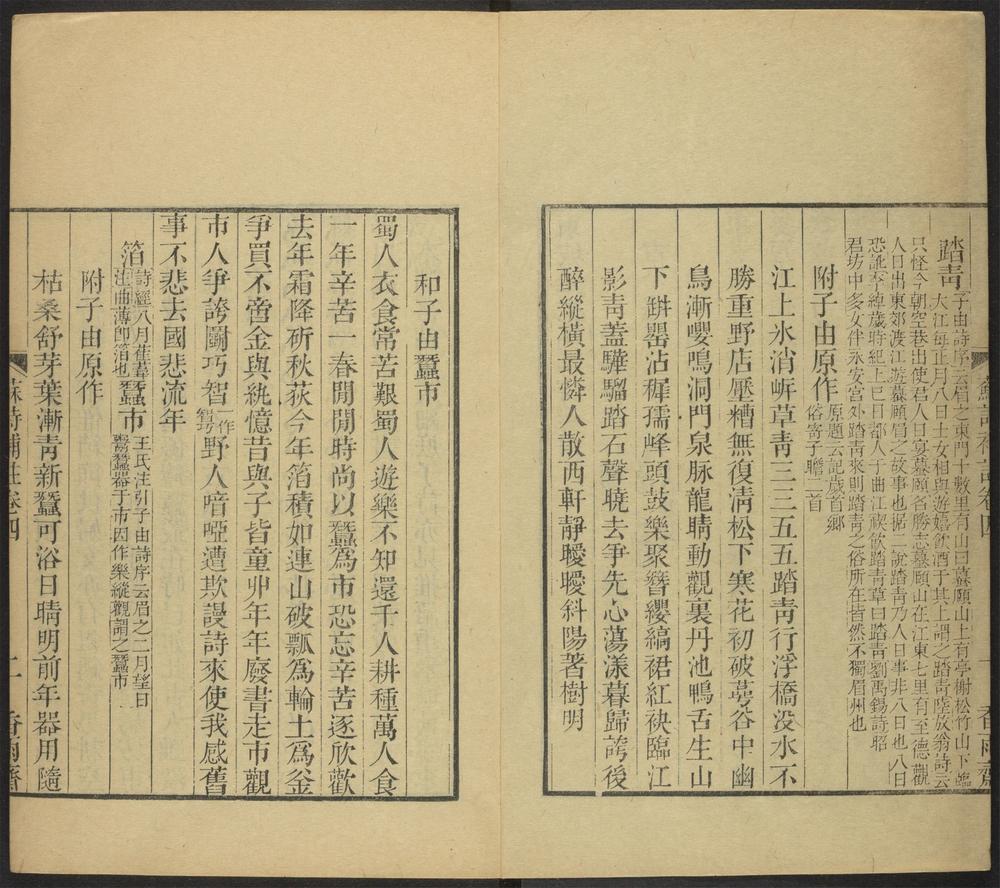 蘇詩補註卷四 一 香雨齋
踏靑子由詩序云眉之東門十數里有山曰蟇頤山上有亭榭松竹山下臨
大江每正月八日士女相與遊嬉飲酒于其上謂之踏靑陸放翁詩云
只怪今朝空巷出使君人日宴蟇頤各勝志蟇頤山在江東七里有至德觀
人日出東郊渡江遊蟇頤眉之故事也據二說踏靑乃人日事非八日也八日
恐訛又李綽歲時紀上巳日都人于曲江禊飲踏靑草曰踏靑劉禹錫詩昭
君坊中多女伴永安宮外踏靑來則踏靑之俗所在皆然不獨眉州也
附子由原作原題云記歲首鄉
俗寄子瞻二首
江上氷消岍草靑三三五五踏靑行浮橋没水不
勝重野店壓糟無復淸松下寒花初破萼谷中幽
鳥漸嚶鳴洞門泉脉龍睛動觀裏丹池鴨舌生山
下缾罌沾穉孺峰頭鼓樂聚簪纓縞裙紅袂臨江
影靑蓋驊騮踏石聲曉去爭先心蕩漾暮歸誇後
醉縱橫最憐人散西軒靜曖曖斜陽著樹明
和子由蠶市
蜀人衣食常苦艱蜀人遊樂不知還千人耕種萬人食
一年辛苦一春閒閒時尚以蠶為市恐忘辛苦逐欣歡
去年霜降斫秋荻今年箔積如連山破瓢爲輪土爲釜
爭買不啻金與紈憶昔與子皆童丱年年廢書走市觀
市人爭誇鬭巧智一作
智巧野人喑啞遭欺謾詩來使我感舊
事不悲去國悲流年
箔詩經八月萑葦
注曲薄卽箔也蠶市王氏注引子由詩序云眉之二月望日
鬻蠶器于市因作樂縱觀謂之蠶市
附子由原作
枯桑舒芽葉漸靑新蠶可浴日晴明前年器用隨
蘇詩補註卷四 二 香雨齋